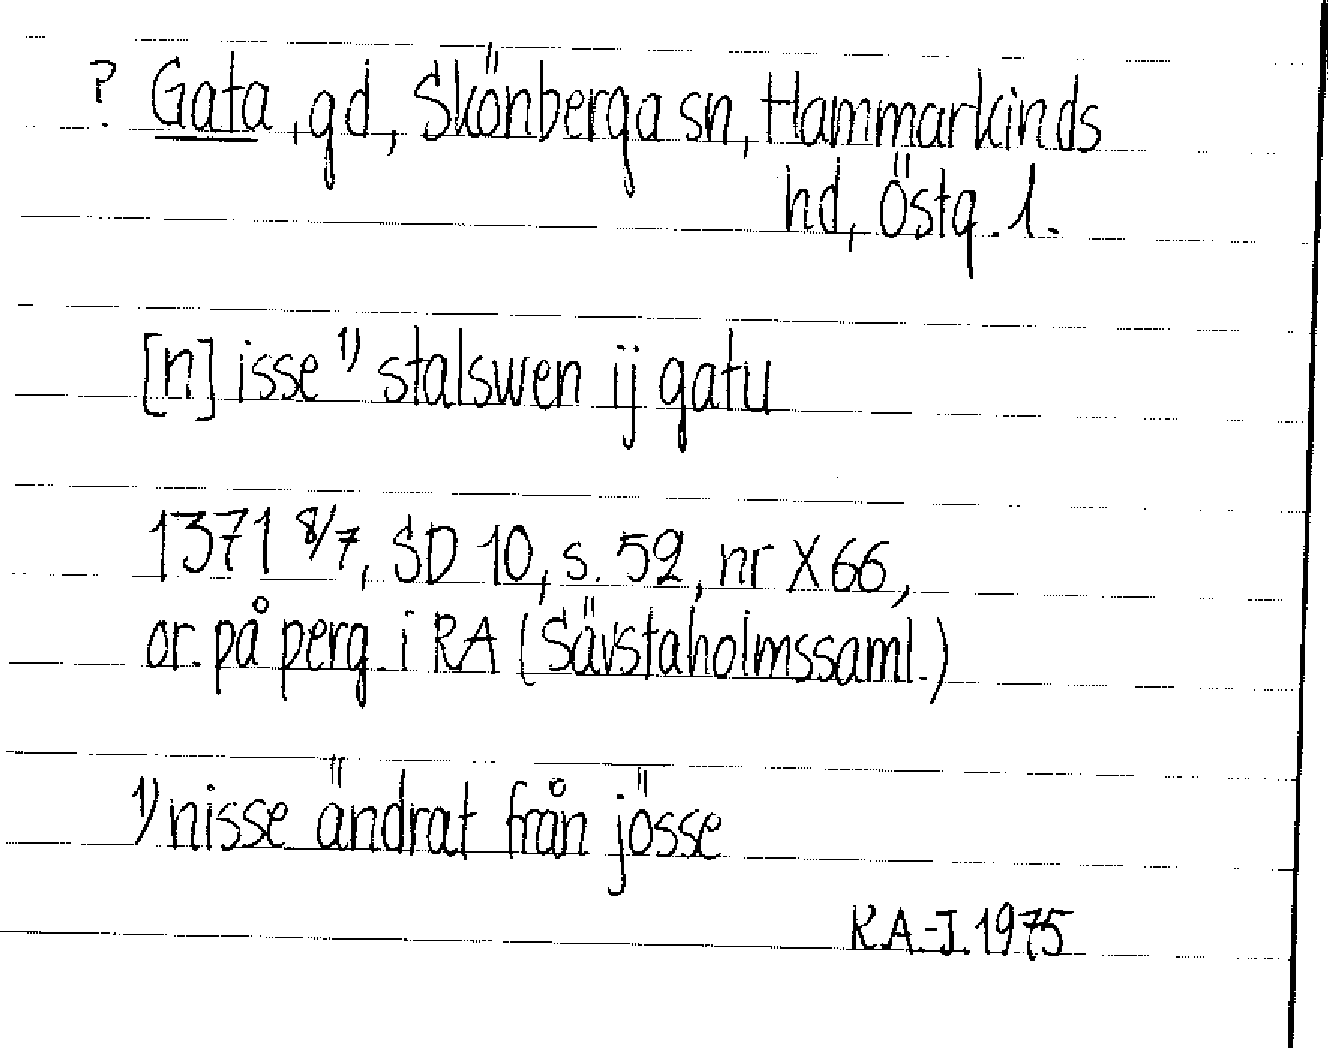 ? Gata, gd, Skönberga sn, Hammarkinds
hd, Östg. l.
[n] isse 1) stalswen ij gatu
1371 8/7, SD 10, s. 52, nr X66,
or. på perg. i RA (Sävstaholmssaml.)
1) nisse ändrat från jösse
R.A.-J. 1975